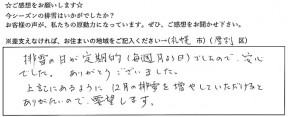 ☆ご感想をお願いします☆
今シーズンの排雪はいかがでしたか？
お客様の声が、私たちの原動力になっています。ぜひ、ご感想をお聞かせ下さい。
※差支えなければ、お住まいの地域をご記入ください→(札幌 市)(厚別 区)
排雪の日が定期的(毎週月曜日)でしたので、安心
でした。ありがとうございました。
上記にあるように12月の排雪を増やしていただけると
ありがたいので、要望します。